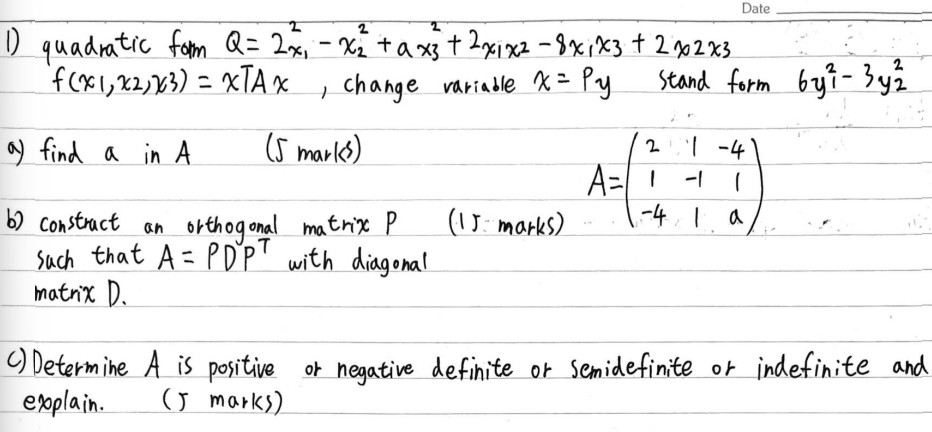 Date
1) quadratic form Q = 2x₁² - x₂² + ax₃² + 2x₁x₂ - 8x₁x₃ + 2x₂x₃
f(x1, x2, x3) = xᵀAx , change variable x = Py stand form 6y₁² - 3y₂²
a) find a in A (5 marks)
A = ( 2 1 -4
1 -1 1
-4 1 a )
b) construct an orthogonal matrix P (15 marks)
such that A = PDPᵀ with diagonal
matrix D.
c) Determine A is positive or negative definite or semidefinite or indefinite and
explain. (5 marks)